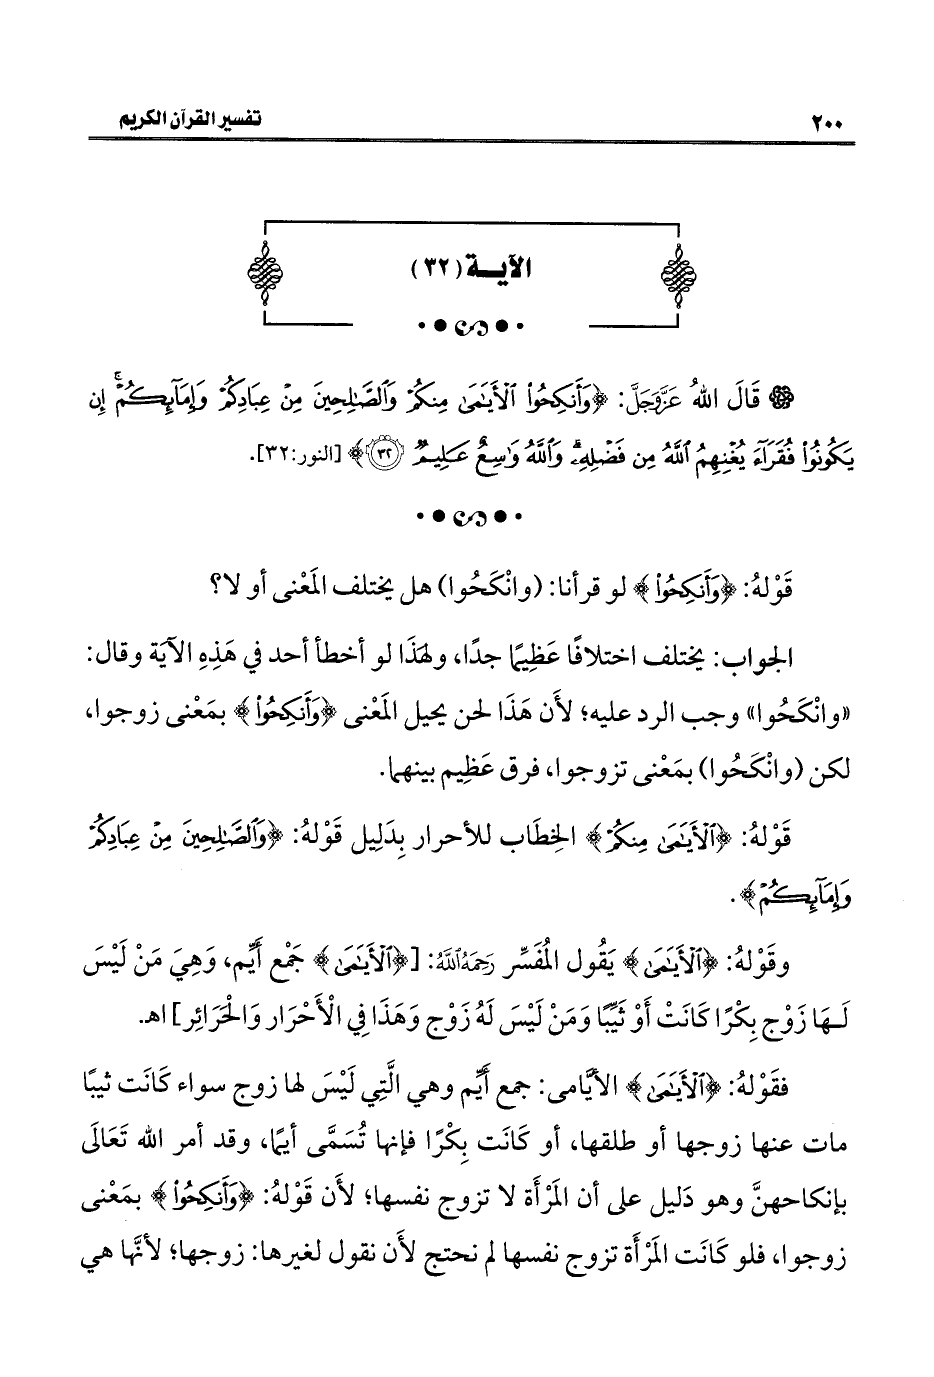 ٢٠٠ تفسير القرآن الكريم
الآيــة (٣٢)
قَالَ اللهُ عَزَّوَجَلَّ: ﴿وَأَنكِحُوا۟ ٱلْأَيَـٰمَىٰ مِنكُمْ وَٱلصَّـٰلِحِينَ مِنْ عِبَادِكُمْ وَإِمَآئِكُمْ ۚ إِن
يَكُونُوا۟ فُقَرَآءَ يُغْنِهِمُ ٱللَّهُ مِن فَضْلِهِۦ ۗ وَٱللَّهُ وَٰسِعٌ عَلِيمٌ ٣٢﴾ [النور:٣٢].
قَوْلهُ: ﴿وَأَنكِحُوا۟﴾ لو قرأنا: (وانْكَحُوا) هل يختلف المَعْنى أو لا؟
الجواب: يختلف اختلافًا عَظِيمًا جدًا، ولهذَا لو أخطأ أحد في هَذِهِ الآيَة وقال:
«وانْكَحُوا» وجب الرد عليه؛ لأن هَذَا لحن يحيل المَعْنى ﴿وَأَنكِحُوا۟﴾ بمَعْنى زوجوا،
لكن (وانْكَحُوا) بمَعْنى تزوجوا، فرق عَظِيم بينهما.
قَوْلهُ: ﴿ٱلْأَيَـٰمَىٰ مِنكُمْ﴾ الخِطَاب للأحرار بِدَلِيل قَوْلهُ: ﴿وَٱلصَّـٰلِحِينَ مِنْ عِبَادِكُمْ
وَإِمَآئِكُمْ﴾.
وقَوْلهُ: ﴿ٱلْأَيَـٰمَىٰ﴾ يَقُول المُفَسِّر رَحِمَهُ اللَّهُ: [﴿ٱلْأَيَـٰمَىٰ﴾ جَمْع أَيِّم، وَهِيَ مَنْ لَيْسَ
لَـهَا زَوْج بِكْرًا كَانَتْ أَوْ ثَيِّبًا وَمَنْ لَيْسَ لَهُ زَوْج وَهَذَا فِي الْأَحْرَار وَالحْرَائِر] اهـ.
فقَوْلهُ: ﴿ٱلْأَيَـٰمَىٰ﴾ الأيَّامى: جمع أيِّم وهي الَّتِي لَيْسَ لها زوج سواء كَانَت ثيبًا
مات عنها زوجها أو طلقها، أو كَانَت بِكْرًا فإنها تُسَمَّى أيمًا، وقد أمر الله تَعَالَى
بإنكاحهنَّ وهو دَلِيل على أن المَرْأَة لا تزوج نفسها؛ لأَن قَوْلهُ: ﴿وَأَنكِحُوا۟﴾ بمَعْنى
زوجوا، فلو كَانَت المَرْأَة تزوج نفسها لم نحتج لأَن نقول لغيرها: زوجها؛ لأنَّها هي